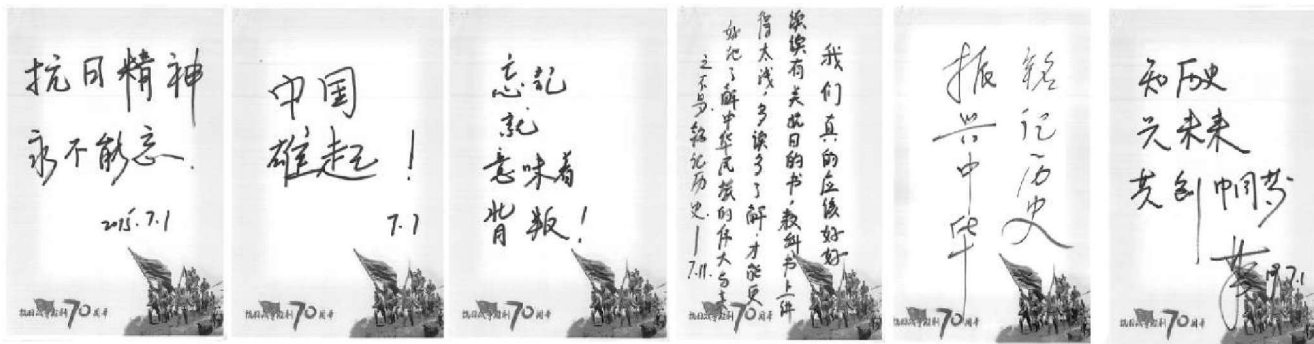 抗日精神
永不能忘.
2015.7.1
抗日战争胜利70周年
中国
雄起！
7.1
抗日战争胜利70周年
忘记
就
意味着
背叛！
抗日战争胜利70周年
我们真的应该好好
读读有关抗日的书，教科书上
得太浅，多读多了解，才能更
好地了解中华民族的伟大与
之不易，铭记历史——
7.11.
抗日战争胜利70周年
铭记历史
振兴中华
抗日战争胜利70周年
知历史
兴未来
共创中国梦
7.1
抗日战争胜利70周年